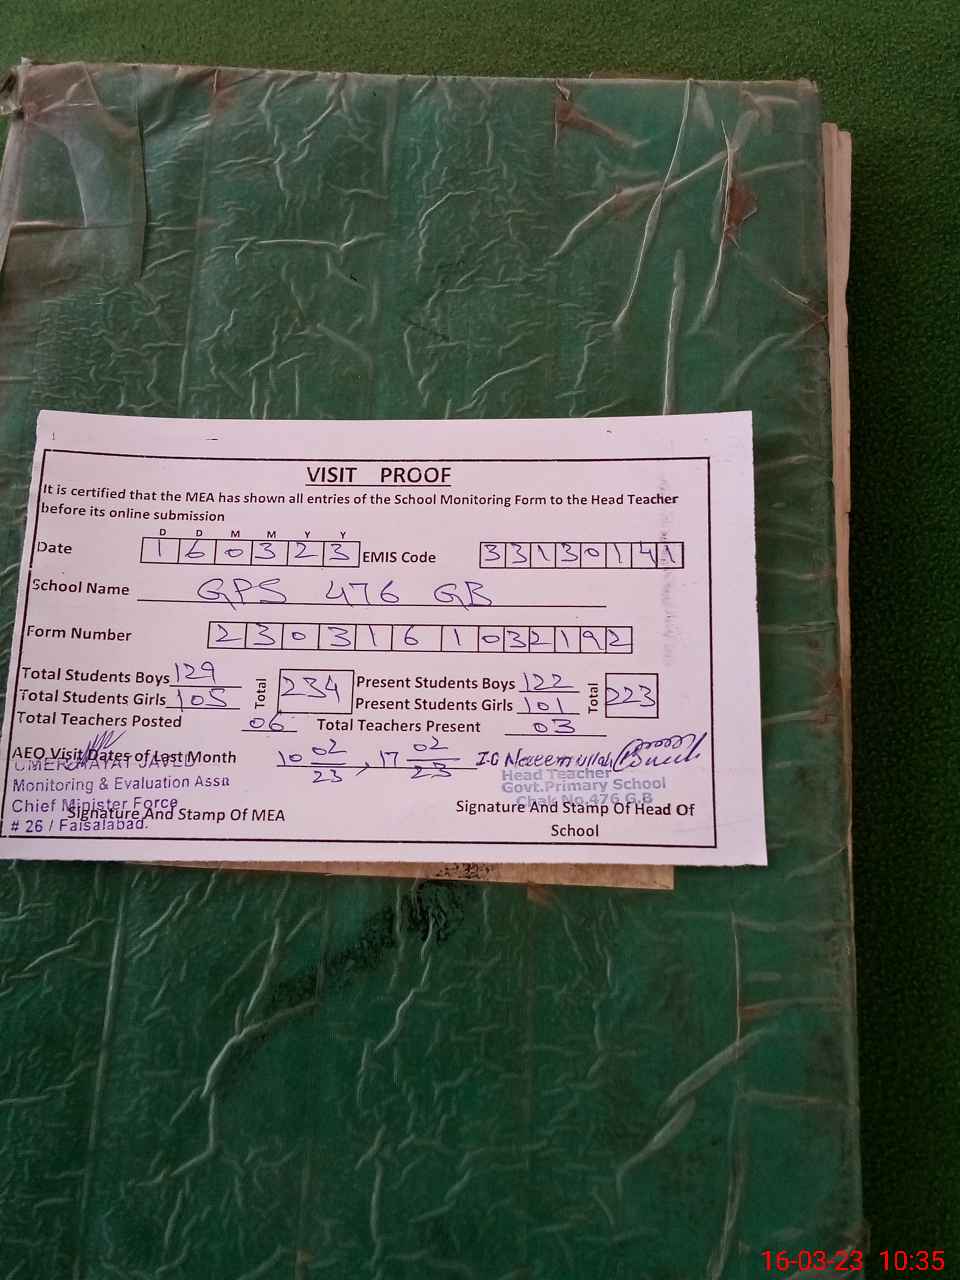 VISIT PROOF
It is certified that the MEA has shown all entries of the School Monitoring Form to the Head Teacher
before its online submission
D D M M Y Y
Date 160323 EMIS Code 33130141
School Name GPS 476 GB
Form Number 2303161032192
Total Students Boys 129 Total 234 Present Students Boys 122 Total 223
Total Students Girls 105 Present Students Girls 101
Total Teachers Posted 06 Total Teachers Present 03
AEO Visit Dates of Last Month 10 02/23, 17 02/23 I.C Naeemullah
UMER HAYAT JAVED
Monitoring & Evaluation Assn
Chief Minister Force
# 26 / Faisalabad.
Signature And Stamp Of MEA
Head Teacher
Govt.Primary School
Chak No.476 G.B
Signature And Stamp Of Head Of
School
16-03-23 10:35